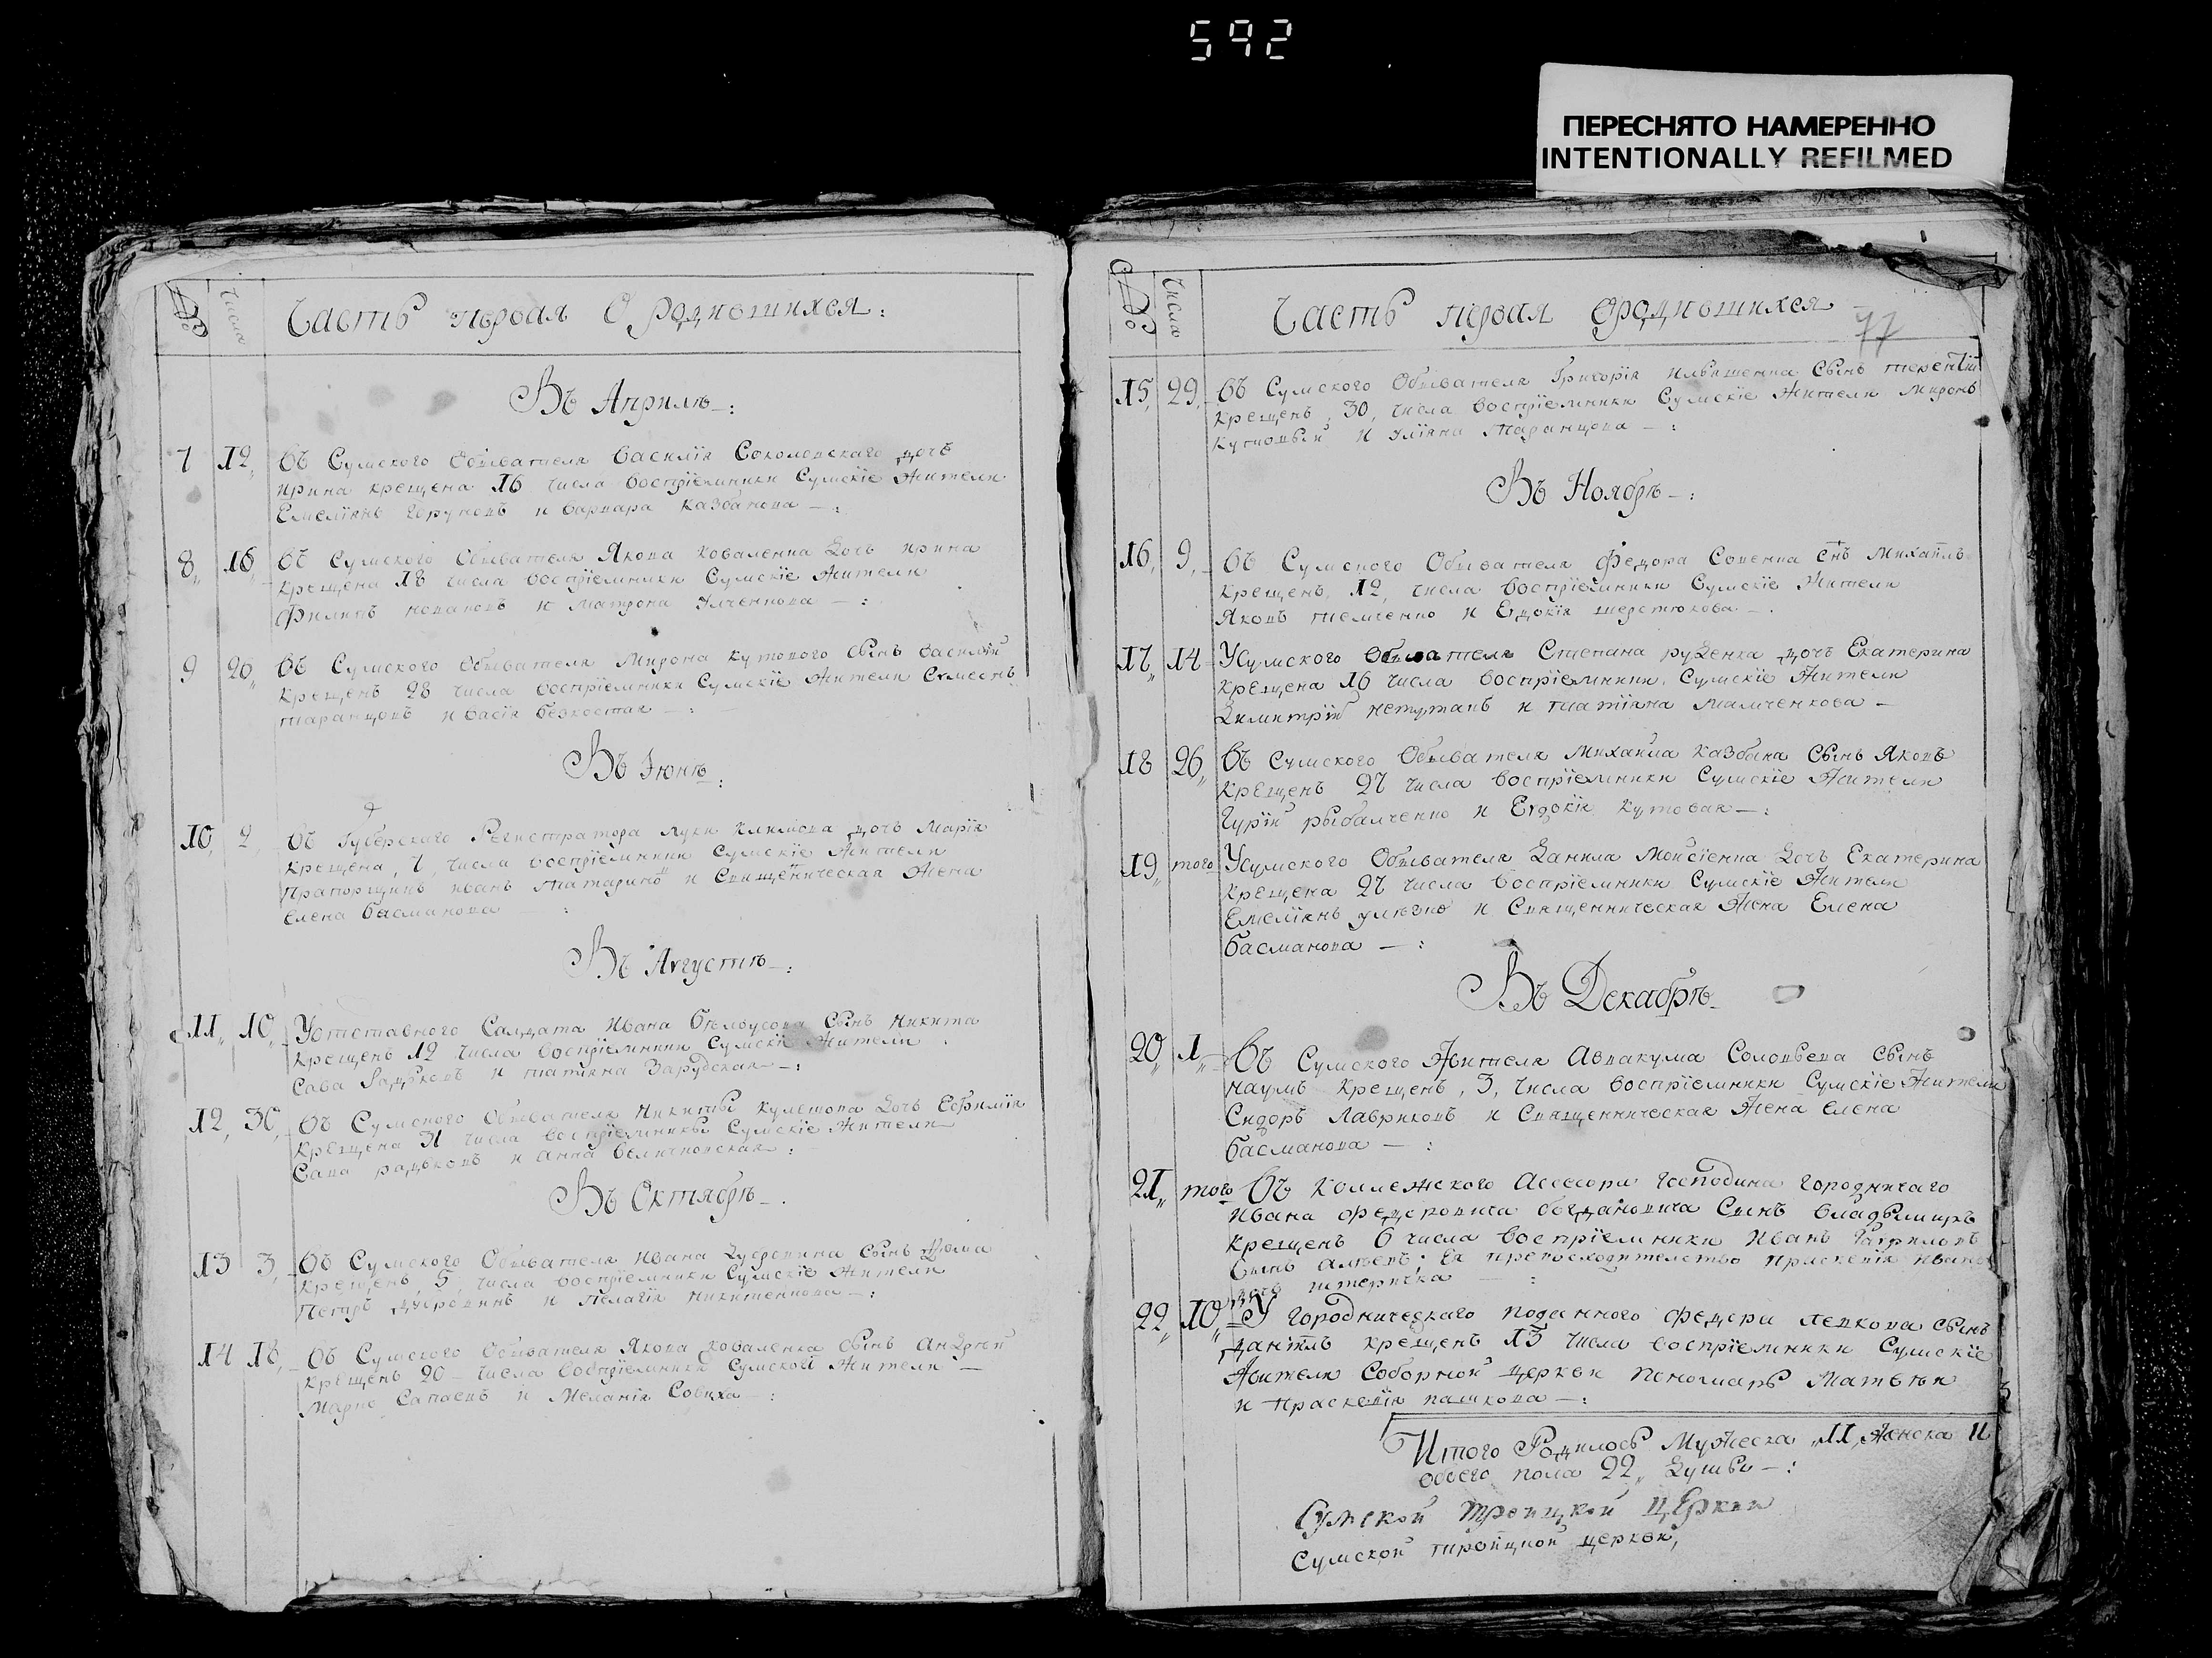 592
ПЕРЕСНЯТО НАМЕРЕННО
INTENTIONALLY REFILMED
№ Числа Часть первая О родившихся:
Въ Априлѣ:
7 12 Въ Сумского Обывателя Василія Соколовскаго дочь
Ирина крещена 16 числа воспріемники Сумскіе Жители
Емеліянъ Горуновъ и Варвара Казбанова —:
8 16 Въ Сумского Обывателя Якова Коваленка Дочь Ирина
крещена 18 числа воспріемники Сумскіе Жители
Филипъ и Матрона —:
9 20 Въ Сумского Обывателя Мирона Кутового сынъ Василій
крещенъ 28 числа воспріемники Сумскіе Жители Семіонъ
Таранцовъ и Васія Безкостая —:
Въ Іюнѣ:
10 2 Въ Губерскаго Регистратора Луки Климова дочь Марія
крещена, 7, числа воспріемники Сумскіе Жители
Прапорщикъ Иванъ Татариновъ и Священническая Жена
Елена Басманова —:
Въ Августѣ —:
11 10 Уотставного Салдата Ивана Бѣлоусова Сынъ Никита
крещенъ 12 числа воспріемники Сумскіе Жители
Сава Радковъ и Татіяна Зарудская —:
12 30 Въ Сумского Обывателя Никиты Кулешова Дочь Ефимія
крещена 31 числа воспріемники Сумскіе Жители
Сава Радковъ и Анна Величковская:
Въ Октябрѣ —.
13 3 Въ Сумского Обывателя Ивана сынъ Фома
крещенъ 5, числа воспріемники Сумскіе Жители
Петръ и Пелагія Никитенкова —:
14 18 Въ Сумского Обывателя Якова Коваленка сынъ Андрѣй
крещенъ 20 числа воспріемники Сумской Жители —
Марко Сапаевъ и Меланія Совиха —:
№ Числа Часть первая Ородившихся 77
15 29 Въ Сумского Обывателя Григорія Ильяшенка Сынъ Терентій
крещенъ, 30, числа воспріемники Сумскіе Жители Миронъ
Кутовый и Уліяна Таранцова —:
Въ Ноябрѣ —:
16 9 Въ Сумского Обывателя Федора Совенка Снъ Михаилъ
крещенъ, 12, числа воспріемники Сумскіе Жители
Яковъ Темченко и Евдокія Шерстюкова —.
17 14 Усумского Обывателя Степана Руденка дочь Екатерина
крещена 16 числа воспріемники Сумскіе Жители
Димитрій и Татіяна —
18 26 Въ Сумского Обывателя Михаила Казбана Сынъ Яковъ
крещенъ 27 числа воспріемники Сумскіе Жители
Гурій Рыбалченко и Евдокія Кутовая —:
19 того Усумского Обывателя Данила Моисіенка Дочь Екатерина
крещена 27 числа воспріемники Сумскіе Жители
Емеліянъ и Священническая Жена Елена
Басманова —:
Въ Декабрѣ —
20 1 Въ Сумского Жителя Аввакума Соловьева сынъ
Наумъ крещенъ, 3, числа воспріемники Сумскіе Жители
Сидоръ Лавриковъ и Священническая Жена Елена
Басманова —:
21 того Въ Коллежского Ассесора Господина Городничаго
Ивана Федоровича Богдановича Сынъ Владымиръ
крещенъ 6 числа воспріемники Иванъ Гавриловъ
Сынъ Ея превосходителство Праскевія Иванова
дочь —:
22 10 У Городническаго Поданного Федора Левкова сынъ
Даніилъ крещенъ 13 числа воспріемники Сумскіе
Жители Соборной Церкви Пономарь Матвѣй
и Праскевія Пашкова —:
Итого Родилось Мужеска 11, Женска 11
обоего пола 22, Душъ —:
Сумской Троицкой Церкви
Сумской троицкой церкви,